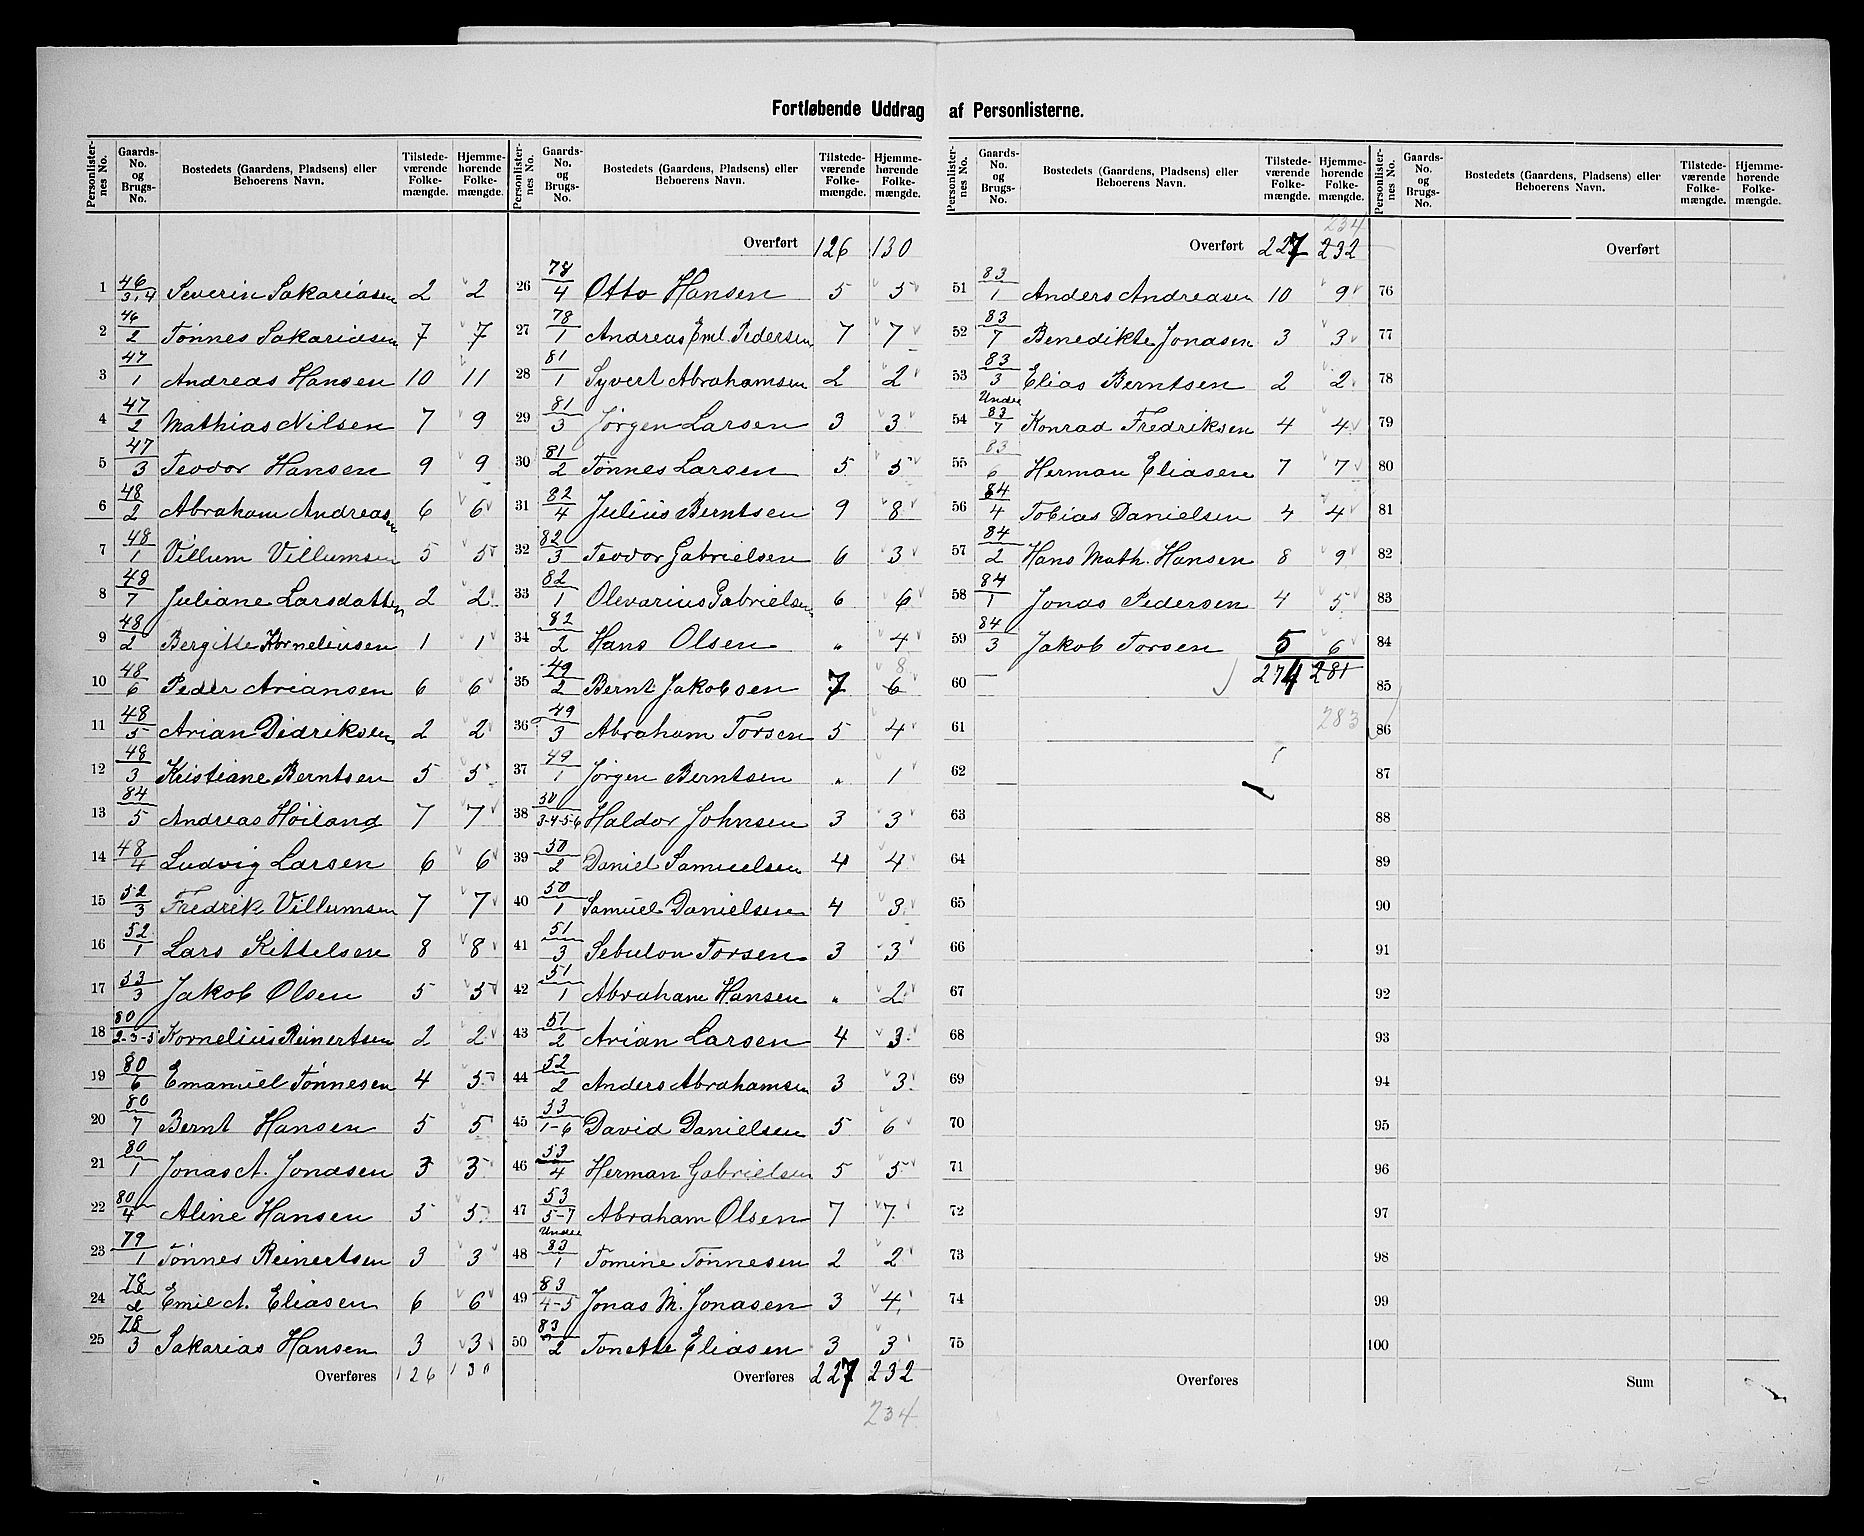 Fortløbende Uddrag af Personlisterne.
Personlister-nes No. Gaards-No. og Brugs-No. Bostedets (Gaardens, Pladsens) eller Beboerens Navn. Tilstede-værende Folke-mængde. Hjemme-hørende Folke-mængde.
1 46/3,4 Severin Sakariasen 2 2
2 46/2 Tønnes Sakariasen 7 7
3 47/1 Andreas Hansen 10 11
4 47/2 Mathias Nilsen 7 9
5 47/3 Teodor Hansen 9 9
6 48/2 Abraham Andreasen 6 6
7 48/1 Villum Villumsen 5 5
8 48/7 Juliane Larsdatter 2 2
9 48/2 Bergitte Korneliusen 1 1
10 48/6 Peder Ariansen 6 6
11 48/5 Arian Didriksen 2 2
12 48/3 Kristiane Berntsen 5 5
13 84/5 Andreas Høiland 7 7
14 48/4 Ludvig Larsen 6 6
15 52/3 Fredrik Villumsen 7 7
16 52/1 Lars Kittelsen 8 8
17 53/3 Jakob Olsen 5 5
18 80/2-3-5 Kornelius Reinertsen 2 2
19 80/6 Emanuel Tønnesen 4 5
20 80/7 Bernt Hansen 5 5
21 80/1 Jonas A. Jonasen 3 3
22 80/4 Aline Hansen 5 5
23 79/1 Tønnes Reinertsen 3 3
24 78/2 Emil A. Eliasen 6 6
25 78/3 Sakarias Hansen 3 3
Overføres 126 130
Personlister-nes No. Gaards-No. og Brugs-No. Bostedets (Gaardens, Pladsens) eller Beboerens Navn. Tilstede-værende Folke-mængde. Hjemme-hørende Folke-mængde.
Overført 126 130
26 78/4 Otto Hansen 5 5
27 78/1 Andreas Eml. Pedersen 7 7
28 81/1 Syvert Abrahamsen 2 2
29 81/3 Jørgen Larsen 3 3
30 81/2 Tønnes Larsen 5 5
31 82/4 Julius Berntsen 9 8
32 82/3 Teodor Gabrielsen 6 3
33 82/1 Olevarius Gabrielsen 6 6
34 82/2 Hans Olsen " 4
8
35 49/2 Bernt Jakobsen 7 6
36 49/3 Abraham Torsen 5 4
37 49/1 Jørgen Berntsen " 1
38 50/3-4-5-6 Haldor Johnsen 3 3
39 50/2 Daniel Samuelsen 4 4
40 50/1 Samuel Danielsen 4 3
41 51/3 Sebulon Torsen 3 3
42 51/1 Abraham Hansen " 2
43 51/2 Arian Larsen 4 3
44 52/2 Anders Abrahamsen 3 3
45 53/1-6 David Danielsen 5 6
46 53/4 Herman Gabrielsen 5 5
47 53/5-7 Abraham Olsen 7 7
48 Under 83/1 Tomine Tønnesen 2 2
49 83/4-5 Jonas M. Jonasen 3 4
50 83/2 Tonette Eliasen 3 3
Overføres 227 232
234
Personlister-nes No. Gaards-No. og Brugs-No. Bostedets (Gaardens, Pladsens) eller Beboerens Navn. Tilstede-værende Folke-mængde. Hjemme-hørende Folke-mængde.
234
Overført 227 232
51 83/1 Anders Andreasen 10 9
52 83/7 Benedikte Jonasen 3 3
53 83/3 Elias Berntsen 2 2
54 Under 83/7 Konrad Fredriksen 4 4
55 83/6 Herman Eliasen 7 7
56 84/4 Tobias Danielsen 4 4
57 84/2 Hans Math. Hansen 8 9
58 84/1 Jonas Pedersen 4 5
59 84/3 Jakob Torsen 5 6
60 274 281
61 283
62
63
64
65
66
67
68
69
70
71
72
73
74
75
Overføres
Personlister-nes No. Gaards-No. og Brugs-No. Bostedets (Gaardens, Pladsens) eller Beboerens Navn. Tilstede-værende Folke-mængde. Hjemme-hørende Folke-mængde.
Overført
76
77
78
79
80
81
82
83
84
85
86
87
88
89
90
91
92
93
94
95
96
97
98
99
100
Sum